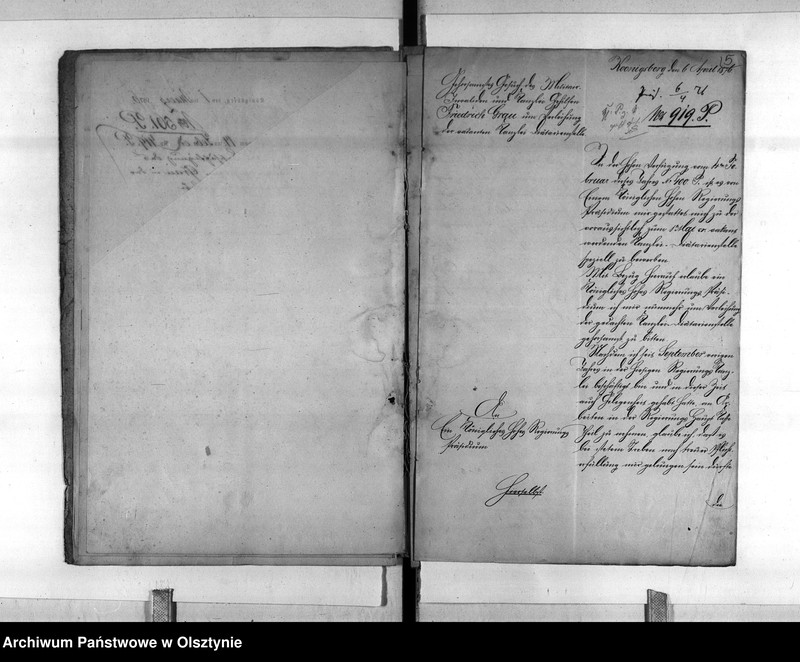 5
Koenigsberg den 6 April 1876
Gehorsames Gesuch des Militair
Invaliden und Kanzlei Gehülfen
Friedrich Grau um Verleihung
der vakanten Kanzlei Diätarienstelle
Präs. 6/4
No 919. P.
In der hohen Verfügung vom Fe
bruar dieses Jahres No 400 P. ist es von
Einem Königlichen Hohen Regierungs
Präsidium mir gestattet mich zu der
voraussichtlich zum 1 Mai cr. vakant
werdenden Kanzlei-Diätarienstelle
speziell zu bewerben.
Mit Bezug hierauf erlaube ein
Königliches Hohes Regierungs Präsi-
dium ich mir nunmehr um Verleihung
der gedachten Kanzlei Diätarienstelle
gehorsamst zu bitten
Nachdem ich seit September vorigen
Jahres in der hiesigen Regierungs Canz-
lei beschäftigt bin und in dieser Zeit
auch Gelegenheit gehabt hatte, an Ar
beiten in der Regierungs Haupt Kasse
Theil zu nehmen, glaube ich, daß es
bei stetem Streben nach treuer Pflicht
erfüllung mir gelungen sein dürfte
die
An
Ein Königliches Hohes Regierungs
Präsidium
Hierselbst
No 301 P
Archiwum Państwowe w Olsztynie